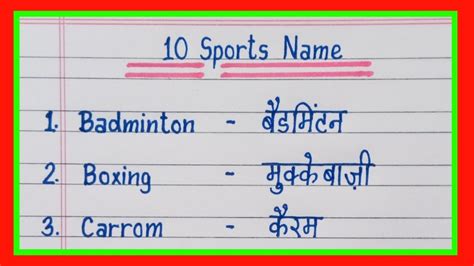 10 Sports Name
1. Badminton - बैडमिंटन
2. Boxing - मुक्केबाज़ी
3. Carrom - कैरम